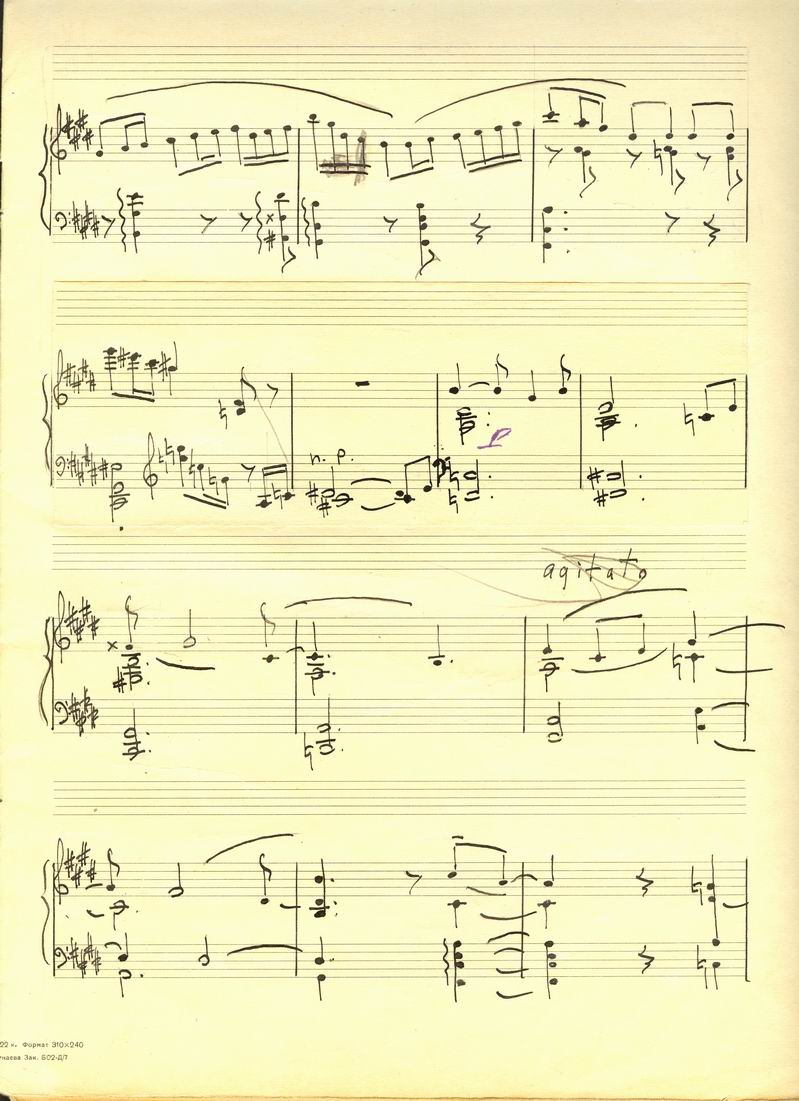 п. р.
p
agitato
22 к. Формат 310×240
Зак. 602-Д/7